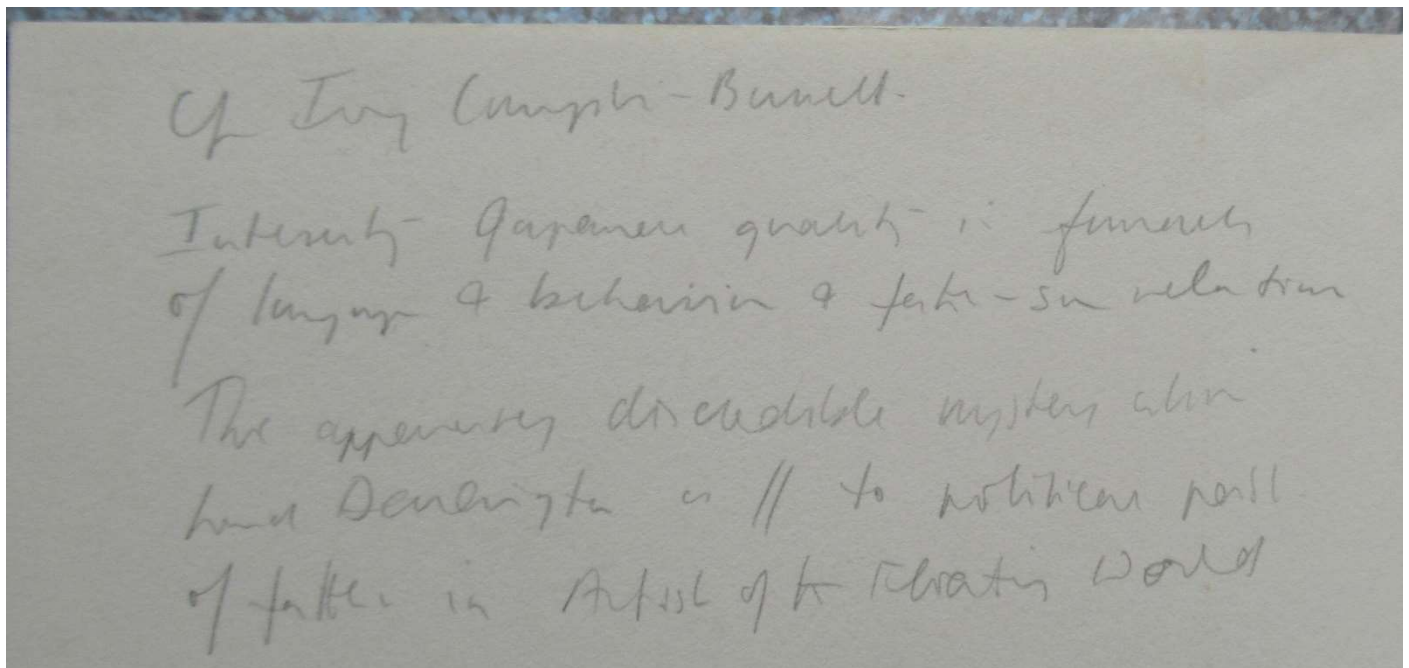 Cf Ivy Compton-Burnett.
Interesting Japanese quality in formality
of language & behaviour & father-son relation
The apparently discreditable mystery about
Lord Darlington is // to political past
of father in Artist of the Floating World